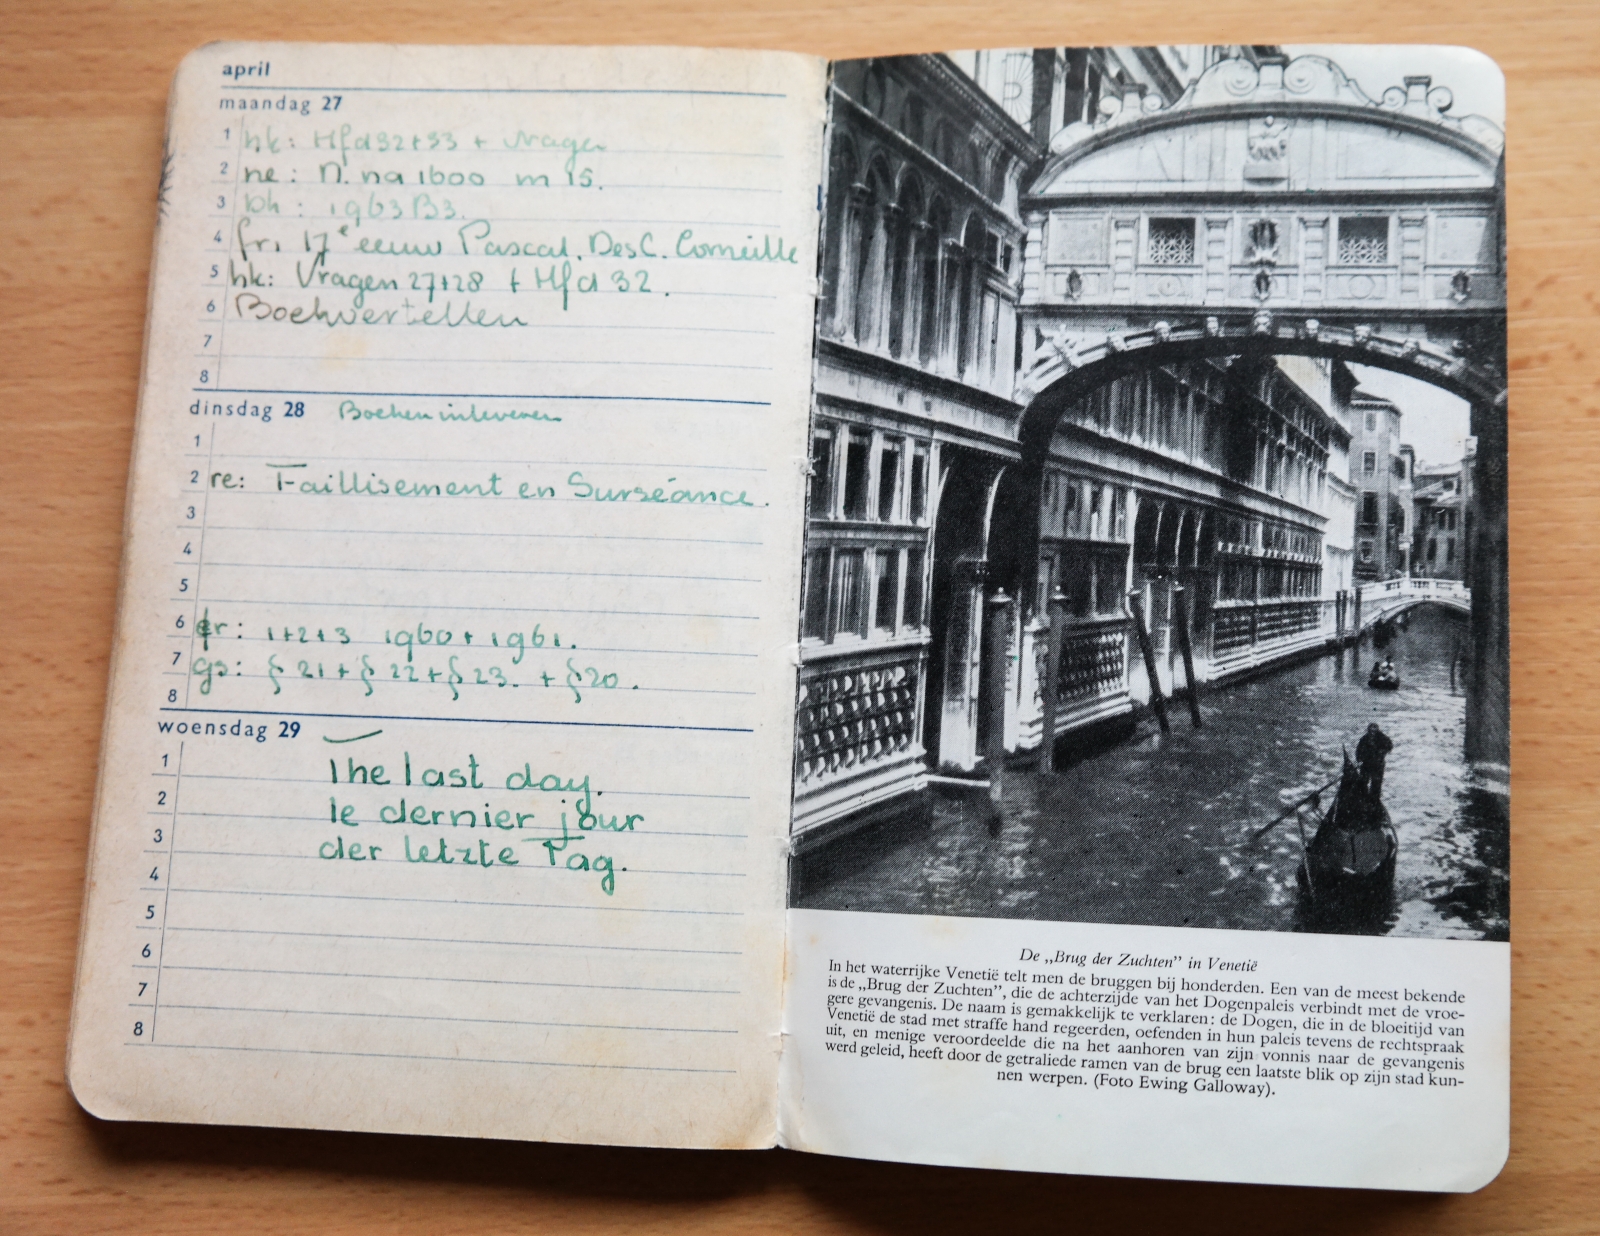 april
maandag 27
1 hk: Hfd 32+33 + vragen
2 ne: N. na 1600 m 15.
3 bh: 1963 B3.
4 fr, 17e eeuw Pascal, Des C. Corneille
5 hk: Vragen 27+28 + Hfd 32.
6 Boekvertellen
7
8
dinsdag 28 Boeken inleveren
1
2 re: Faillisement en Surséance.
3
4
5
6 gr: 1+2+3 1960 + 1961.
7 gs: § 21 + § 22 + § 23. + § 20.
8
woensdag 29
1 The last day.
2 le dernier jour
3 der letzte Tag.
4
5
6
7
8
De „Brug der Zuchten” in Venetië
In het waterrijke Venetië telt men de bruggen bij honderden. Een van de meest bekende
is de „Brug der Zuchten”, die de achterzijde van het Dogenpaleis verbindt met de vroe-
gere gevangenis. De naam is gemakkelijk te verklaren: de Dogen, die in de bloeitijd van
Venetië de stad met straffe hand regeerden, oefenden in hun paleis tevens de rechtspraak
uit, en menige veroordeelde die na het aanhoren van zijn vonnis naar de gevangenis
werd geleid, heeft door de getraliede ramen van de brug een laatste blik op zijn stad kun-
nen werpen. (Foto Ewing Galloway).